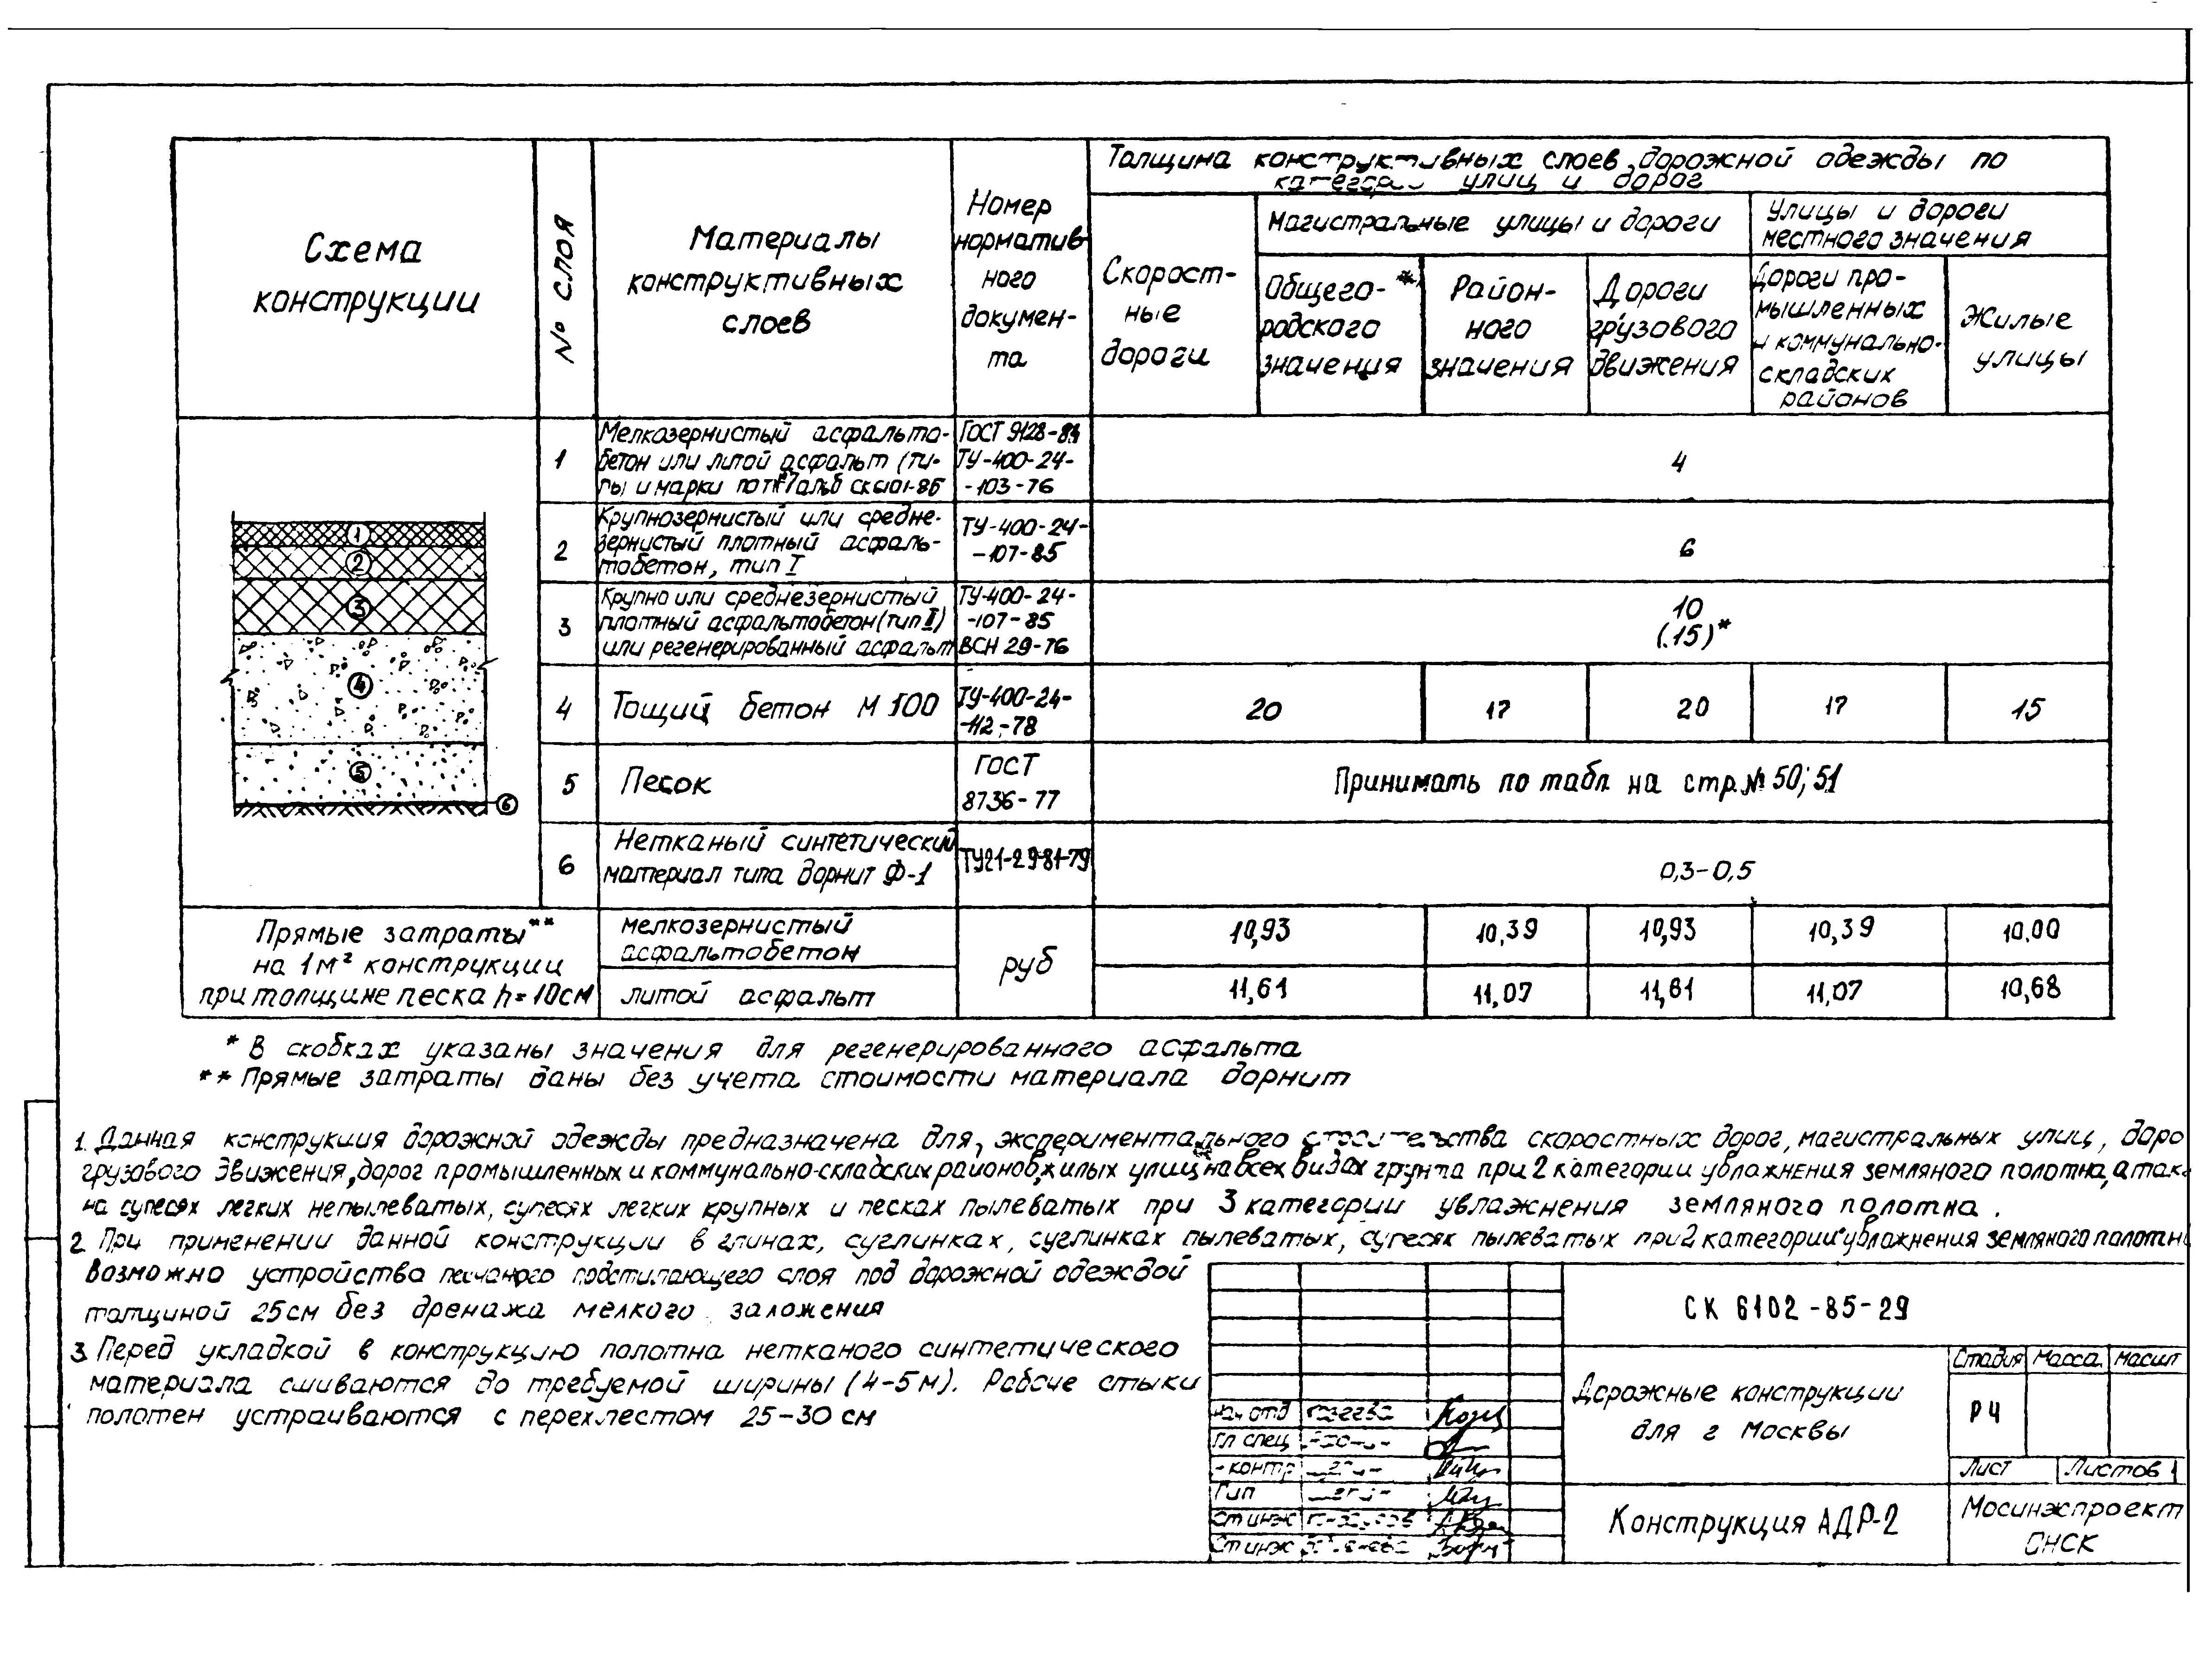 Схема
конструкции
№ слоя
Материалы
конструктивных
слоев
Номер
норматив-
ного
докумен-
та
Толщина конструктивных слоев дорожной одежды по
категории улиц и дорог
Скорост-
ные
дороги
Магистральные улицы и дороги
Улицы и дороги
местного значения
Общего- *)
родского
значения
Район-
ного
значения
Дороги
грузового
движения
Дороги про-
мышленных
и коммунально-
складских
районов
Жилые
улицы
1
Мелкозернистый асфальто-
бетон или литой асфальт (ти-
пы и марки по
ГОСТ 9128-84
ТУ-400-24-
-103-76
4
2
Крупнозернистый или средне-
зернистый плотный асфаль-
тобетон, тип I
ТУ-400-24-
-107-85
6
3
Крупно или среднезернистый
плотный асфальтобетон (тип II)
или регенерированный асфальт
ТУ-400-24-
-107-85
ВСН 29-76
10
(15)*
4
Тощий бетон М 100
ТУ-400-24-
-112-78
20 17 20 17 15
5
Песок
ГОСТ
8736-77
Принимать по табл на стр. № 50; 51
6
Нетканый синтетический
материал типа дорнит Ф-1
ТУ21-29-81-79
0,3-0,5
1
2
3
4
5
6
Прямые затраты**
на 1м² конструкции
при толщине песка h=10см
мелкозернистый
асфальтобетон
литой асфальт
руб
10,93 10,39 10,93 10,39 10.00
11,61 11,07 11,61 11,07 10,68
* В скобках указаны значения для регенерированного асфальта
** Прямые затраты даны без учета стоимости материала дорнит
1. Данная конструкция дорожной одежды предназначена для экспериментального строительства скоростных дорог, магистральных улиц, доро
грузового движения, дорог промышленных и коммунально-складских районов, жилых улиц на всех видах грунта при 2 категории увлажнения земляного полотна, а так
на супесях легких непылеватых, супесях легких крупных и песках пылеватых при 3 категории увлажнения земляного полотна.
2. При применении данной конструкции в глинах, суглинках, суглинках пылеватых, супесях пылеватых при 2 категории увлажнения земляного полотн
возможно устройства песчаного подстилающего слоя под дорожной одеждой
толщиной 25см без дренажа мелкого заложения
3. Перед укладкой в конструкцию полотна нетканого синтетического
материала сшиваются до требуемой ширины (4-5м). Рабочие стыки
полотен устраиваются с перехлестом 25-30 см
СК 6102-85-29
Дорожные конструкции
для г Москвы
Стадия Масса Масшт
РЧ
Лист Листов 1
Конструкция АДР-2
Мосинжпроект
ОНСК
нач отд
Гл спец
контр
Гип
Ст инж
Ст инж